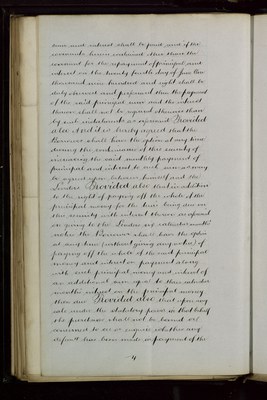 sum and interest shall be paid and if the
covenants herein contained other than the
covenant for the repayment of principal and
interest on the twenty fourth day of June One
thousand nine hundred and eight shall be
duly observed and performed then the payment
of the said principal sum and the interest
thereon shall not be required otherwise than
by such instalments as aforesaid Provided
also And it is hereby agreed that the
Borrower shall have the option at any time
during the continuance of this security of
increasing the said monthly payment of
principal and interest to such sum as may
be agreed upon between himself and the
Lenders Provided also that in addition
to the right of paying off the whole of the
principal money for the time being due on
this security with interest thereon as aforesaid
on giving to the Lenders six calendar months'
notice the Borrower shall have the option
at any time (without giving any notice) of
paying off the whole of the said principal
money and interest on payment along
with such principal money and interest of
an additional sum equal to three calendar
months interest on the principal money
then due Provided also that upon any
sale under the statutory power in that behalf
the purchaser shall not be bound or
concerned to see or inquire whether any
default has been made in payment of the
4